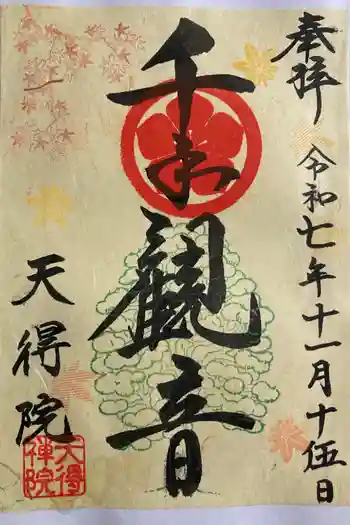 奉拝
令和七年十一月十伍日
千手観音
天得院
天得禅院